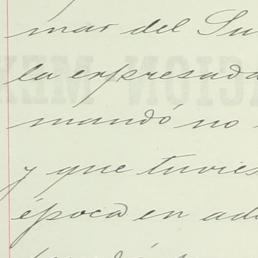 mar del Su
la expresada
mandó no
y que tuvies
época en ade